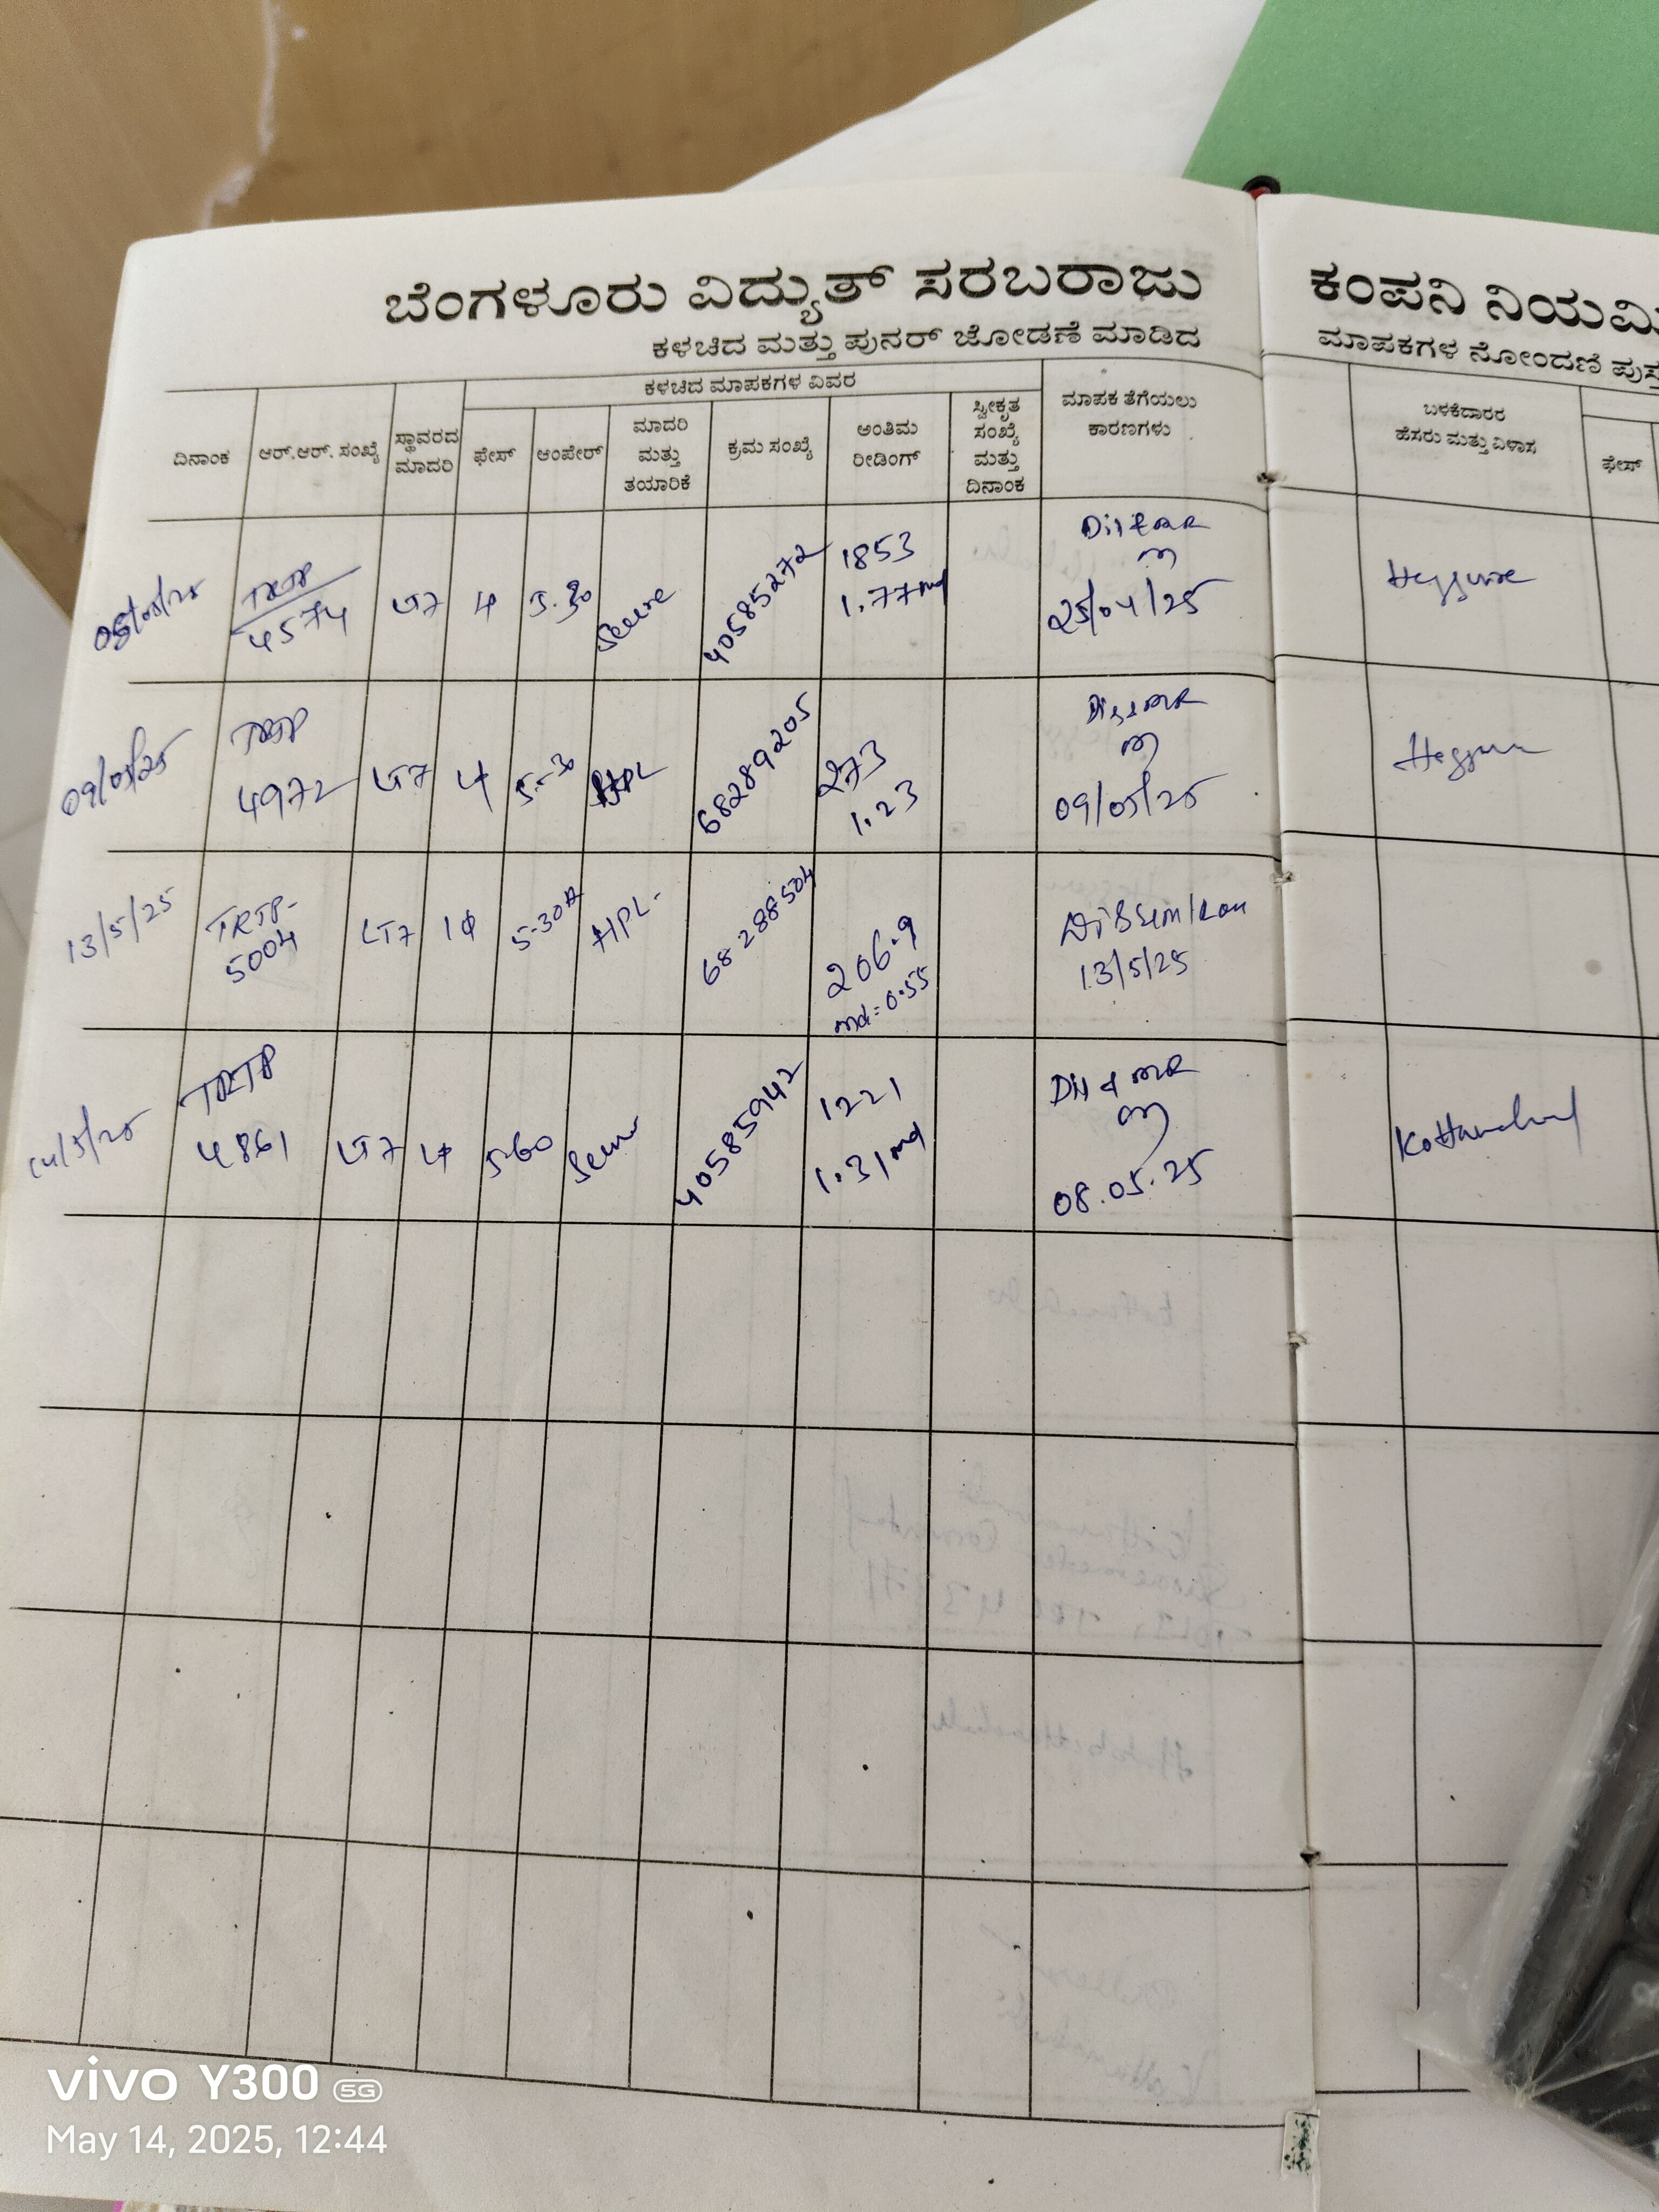 ಬೆಂಗಳೂರು ವಿದ್ಯುತ್ ಸರಬರಾಜು ಕಂಪನಿ ನಿಯಮಿ
ಕಳಚಿದ ಮತ್ತು ಪುನರ್ ಜೋಡಣೆ ಮಾಡಿದ ಮಾಪಕಗಳ ನೋಂದಣಿ ಪುಸ್ತ
ಕಳಚಿದ ಮಾಪಕಗಳ ವಿವರ
ದಿನಾಂಕ
ಆರ್.ಆರ್. ಸಂಖ್ಯೆ
ಸ್ಥಾವರದ
ಮಾದರಿ
ಫೇಸ್
ಆಂಪೇರ್
ಮಾದರಿ
ಮತ್ತು
ತಯಾರಿಕೆ
ಕ್ರಮ ಸಂಖ್ಯೆ
ಅಂತಿಮ
ರೀಡಿಂಗ್
ಸ್ವೀಕೃತ
ಸಂಖ್ಯೆ
ಮತ್ತು
ದಿನಾಂಕ
ಮಾಪಕ ತೆಗೆಯಲು
ಕಾರಣಗಳು
ಬಳಕೆದಾರರ
ಹೆಸರು ಮತ್ತು ವಿಳಾಸ
ಫೇಸ್
TRTP
4574
LT7
5.30
Secure
40585272
1853
1.77 md
25/04/25
09/05/25
TRTP
4972
LT7
5-30
HPL
68289205
273
1.23
09/05/25
13/5/25
TRTP-
5004
LT7
1Φ
5-30A
HPL-
68288504
206.9
md=0.55
13/5/25
14/5/25
TRTP
4861
LT7
5-60
40585942
1221
1.31 md
08.05.25
vivo Y300 5G
May 14, 2025, 12:44